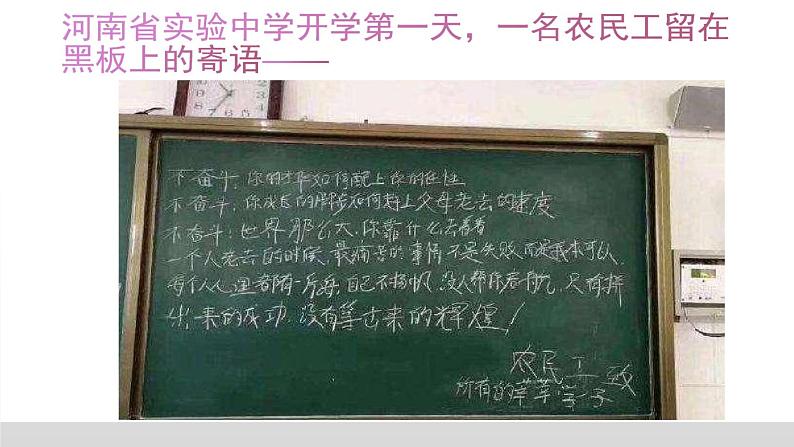 河南省实验中学开学第一天，一名农民工留在
黑板上的寄语——
不奋斗，你的才华如何配上你的任性
不奋斗，你成长的脚步如何赶上父母老去的速度
不奋斗，世界那么大，你靠什么去看看
一个人老去的时候，最痛苦的事情不是失败，而是我本可以，
每个人心里都有一片海，自己不扬帆，没人帮你启航，只有拼
出来的成功，没有等出来的辉煌！
农民工致
所有的莘莘学子